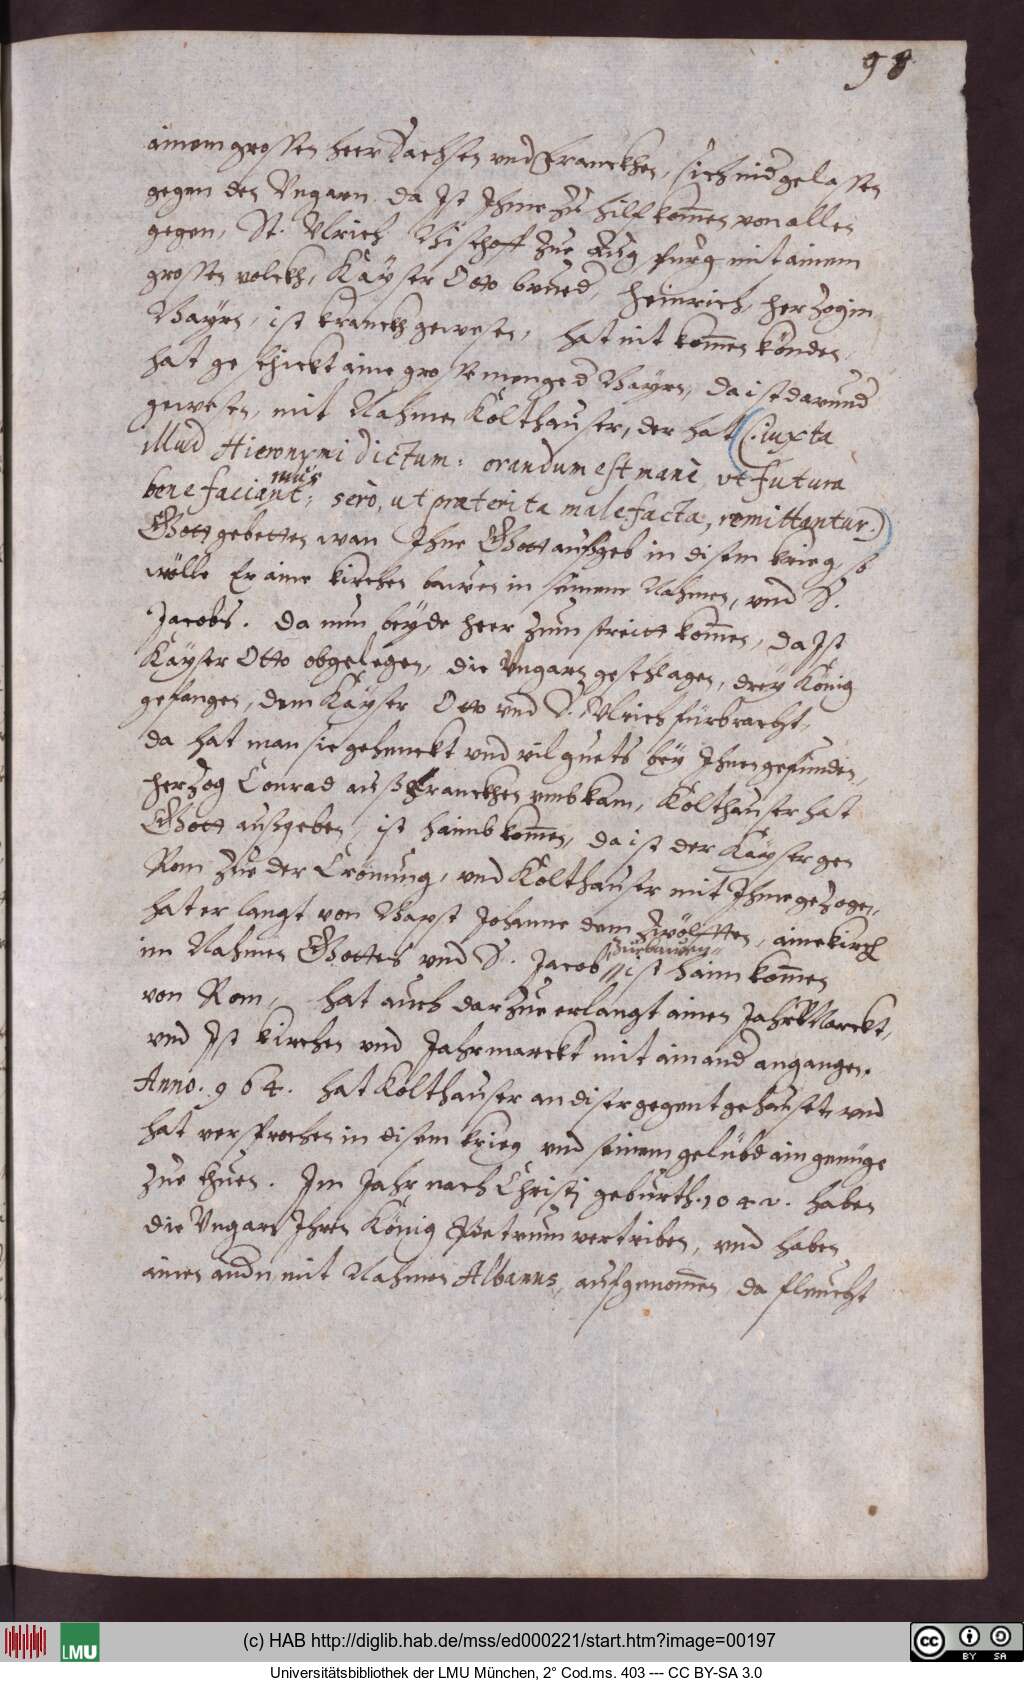 98
ainem grossen heer Sachsen vnd Franckhen, sich nid gelassen
gegen den Vngarn, da Ist Ihme zu hilf kom̄en von allen
gegen, St. Vlrich Bischoff zue Augspurg mit ainem
grossen volckh, Kayser Otto brued, Heinrich, Herzog in
Bayrn, ist kranckh gewesen, hat nit kom̄en könden,
hat geschickt aine grosse menge d Bayrn, da ist darund
gewesen, mit Nahmen Kolthauser, der hat (: iuxta
illud Hieronymi dictum: orandum est manè, vt futura
benefaciant; serò, ut præterita malefacta, remittantur.)
mus
Gott gebetten wan Ihne Gott aushgeb in disem krieg, so
wölle Er aine kirchen bawen in seinem Nahmen, vnd S.
Jacobs. Da nun beyde heer zum streitt kom̄en, da Ist
Kayser Otto obgelegen, die Vngarn geschlagen, drey König
gefangen, dem Kayser Otto vnd S. Vlrich fürbracht,
da hat man sie gehenckt vnd vil guets bey Ihnen gefunden,
Herzog Conrad auß Franckhen vmbkam, Kolthauser hat
Gott außgeben, ist haimb kom̄en, da ist der Kayser gen
Rom zue der Crönung, vnd Kolthauser mit Ihme gezogen,
hat erlangt von Bapst Johanne dem zwölfften, aine kirch
zuebawen
im Nahmen Gottes vnd S. Jacob // ist haim kom̄en
von Rom, hat auch darzue erlangt ainen Jahr Marckt,
vnd Ist kirchen vnd Jahrmarckt mit ainand angangen.
Anno. 964. hat Kolthauser an diser gegent gehauset, vnd
hat versprochen in disem krieg vnd seinem gelübd ain genüge
zue thuen. Im Jahr nach Christi geburth. 1042. haben
die Vngarn Ihren König Petrum vertriben, vnd haben
ainen andn mit Nahmen Albanus, aufgenom̄en, da fleucht
(c) HAB http://diglib.hab.de/mss/ed000221/start.htm?image=00197
LMU
cc BY SA
Universitätsbibliothek der LMU München, 2° Cod.ms. 403 --- CC BY-SA 3.0